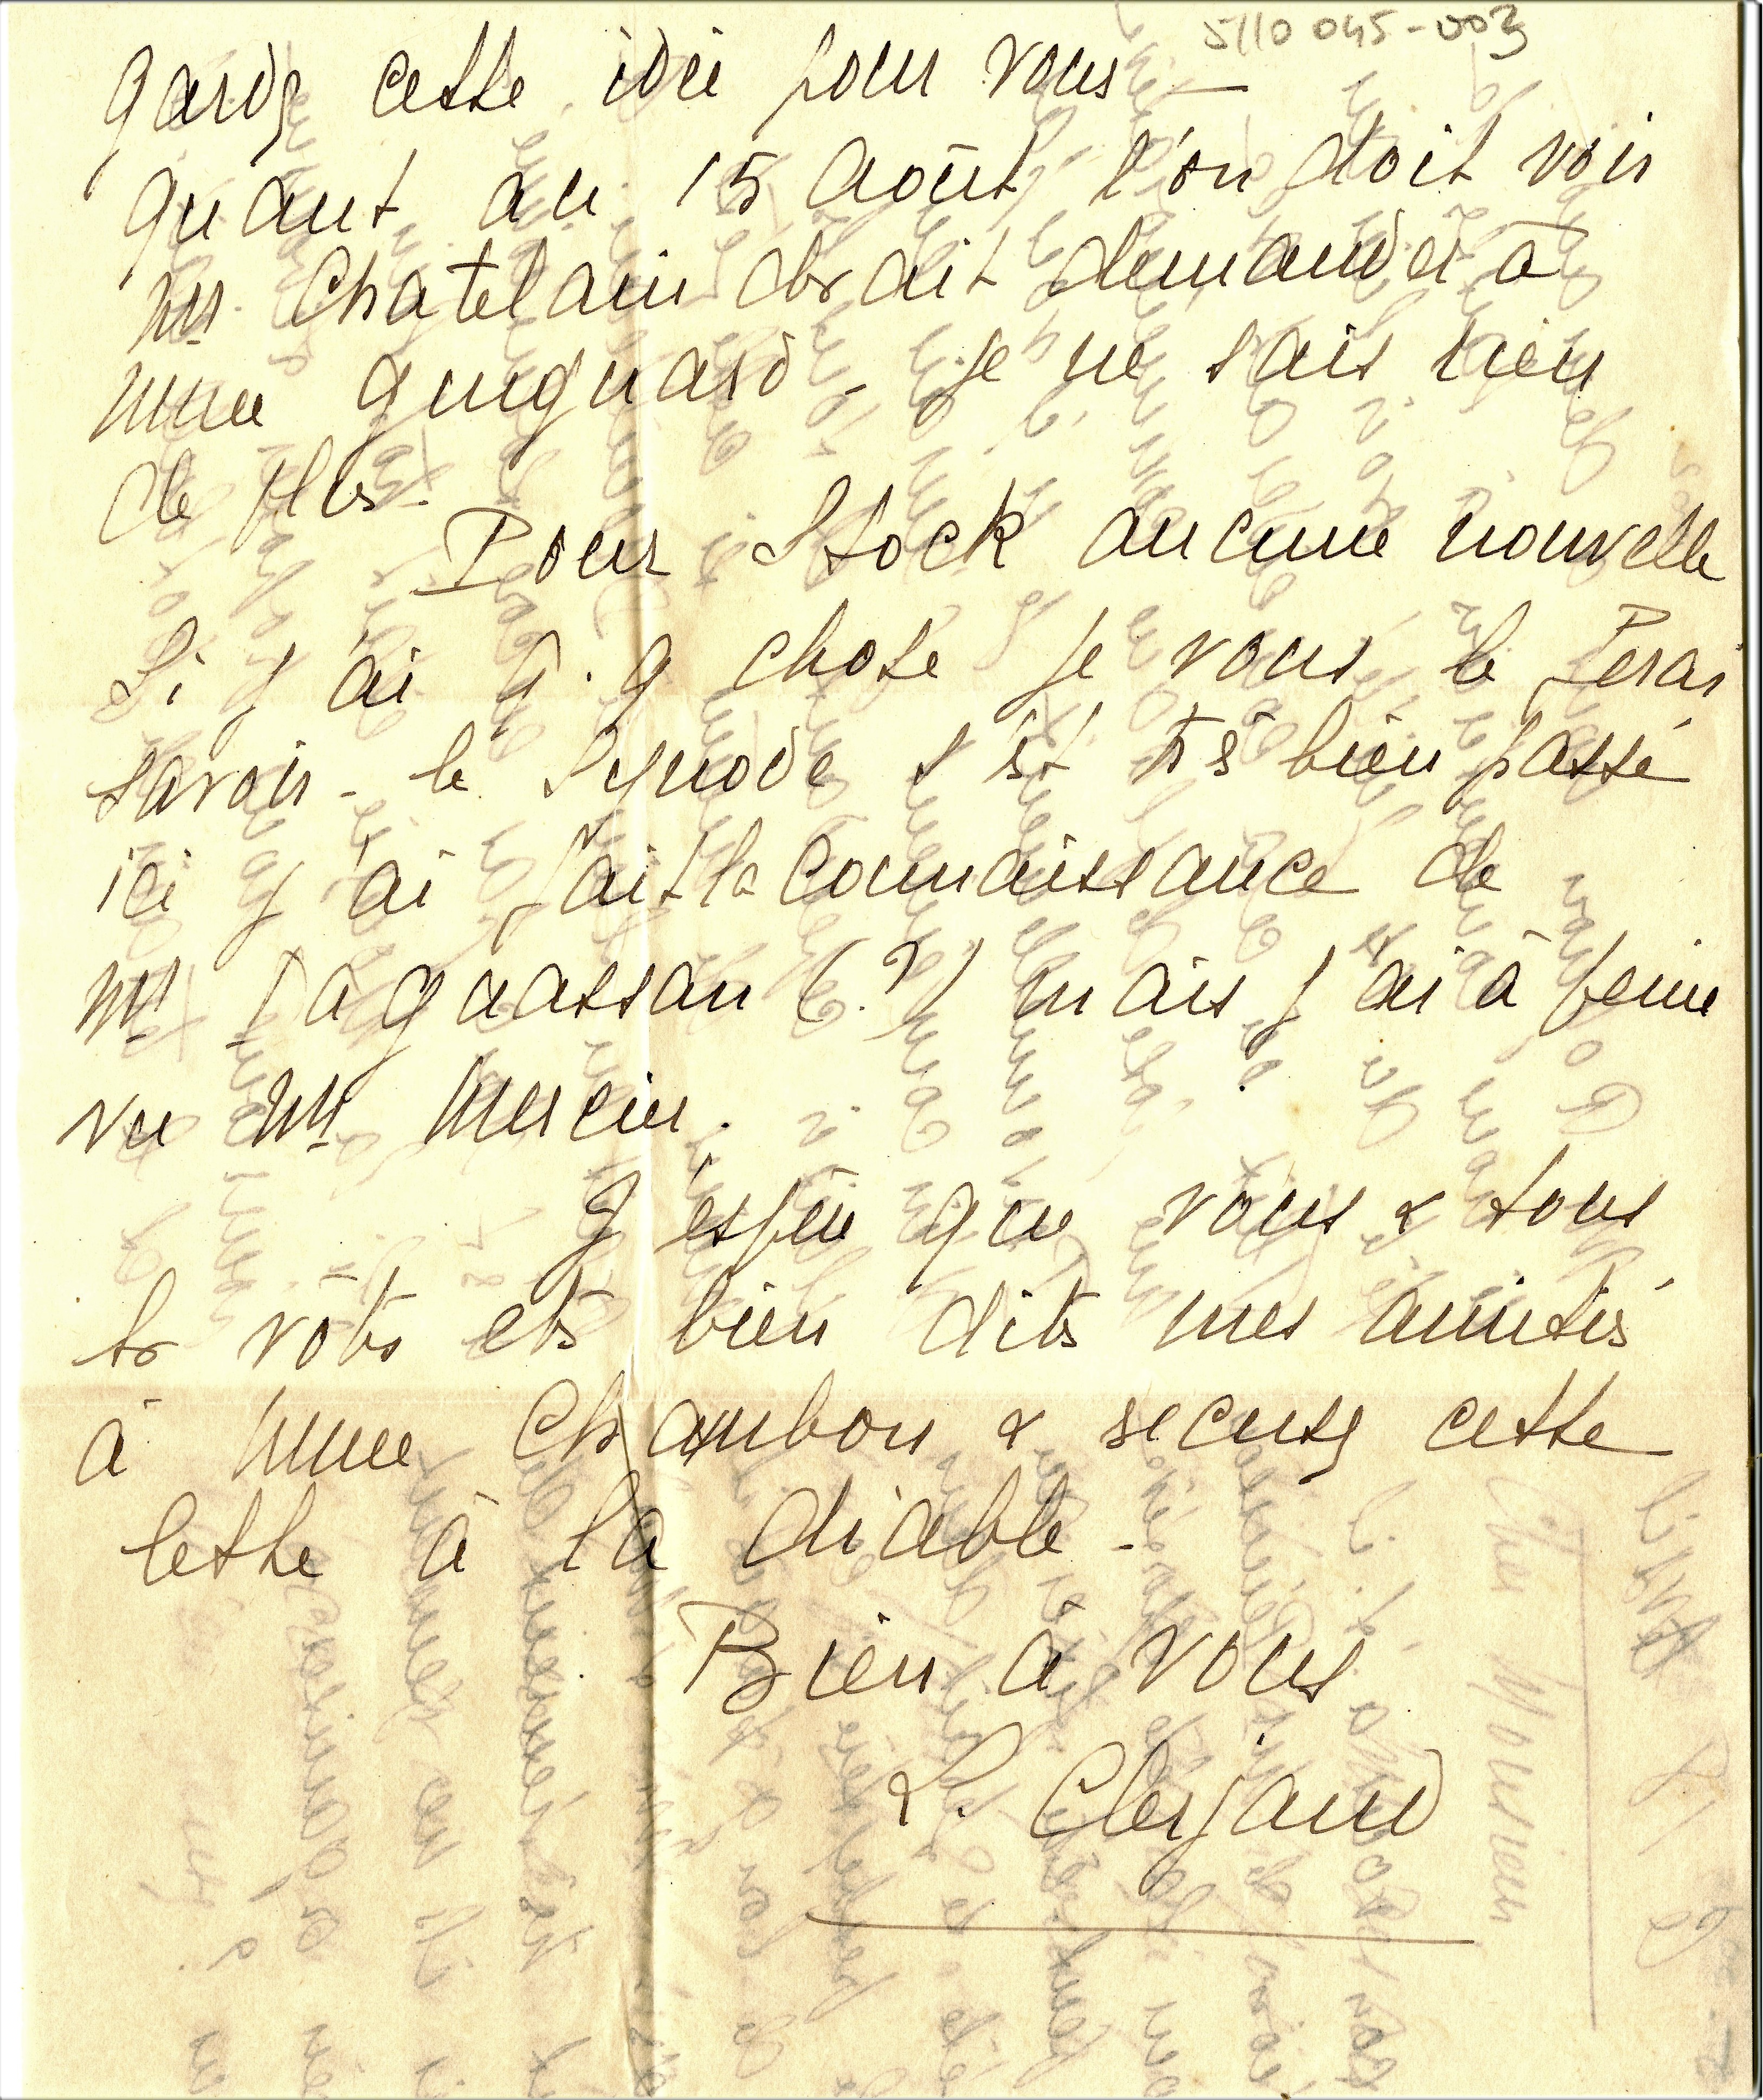 5110 045-003
gardz cette idée pour vous —
quant au 15 Août, l'on doit voir
Mr Chatelain devait demander à
Mme Guignard - je ne sais rien
de plus -
Pour Stock aucune nouvelle
Si j'ai q.q chose je vous le ferai
savoir - le Synode s'est ts bien passé
ici j'ai fait la connaissance de
Mr (?) mais j'ai à peine
vu Mr Mercier.
J'espère que vous & tous
les vôtres êtes bien dites mes amitiés
à Mme Chambon & excusez cette
lettre à la diable -
Bien à vous
L. Clerjaud